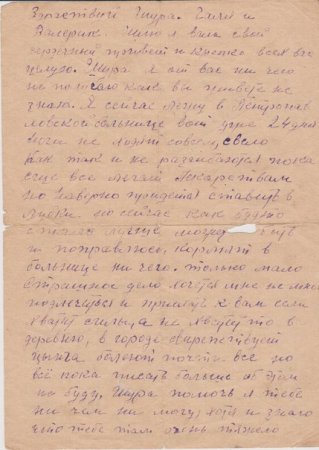 Здраствуй Шура. Гиля и
Валерик. Шлю я вам свой
сердечный привет и крепко всех вас
целую. Шура я от вас ни чего
не получаю как вы живете не
знаю. Я сейчас лежу в Петропав
ловской больнице вот уже 24 дня
ноги не ходят совсем свело
как так и не разгибаются пока
еще все лечат лекарствам
но наверно придется ставить в
лубки. но сейчас как будто
стало лучше может быть
и поправлюсь. Кормят в
больнице ни чего. только мало
Страшное дело хочется мне не много
подлечиться и приехать к вам если
хватит силы, а не хватит то в
деревню, в городе сварепствует
цынга болеют почти все но
всё пока писать больше об этом
не буду, Шура помочь я тебе
ни чем ни могу, хотя и знаю
что тебе там очень тяжело